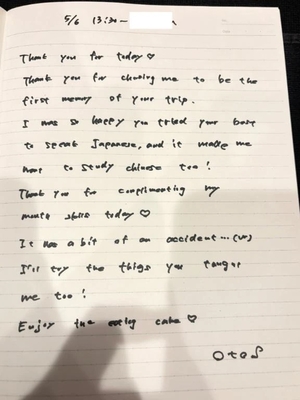 5/6 13:30〜
Thank you for today♡
Thank you for chosing me to be the
first memory of your trip.
I was so happy you tried your best
to speak Japanese, and it make me
want to study chinese too!
Thank you for complimenting my
skills today♡
It was a bit of an accident...(vv)
I'll try the things you taught
me too!
Enjoy the eating cake♡